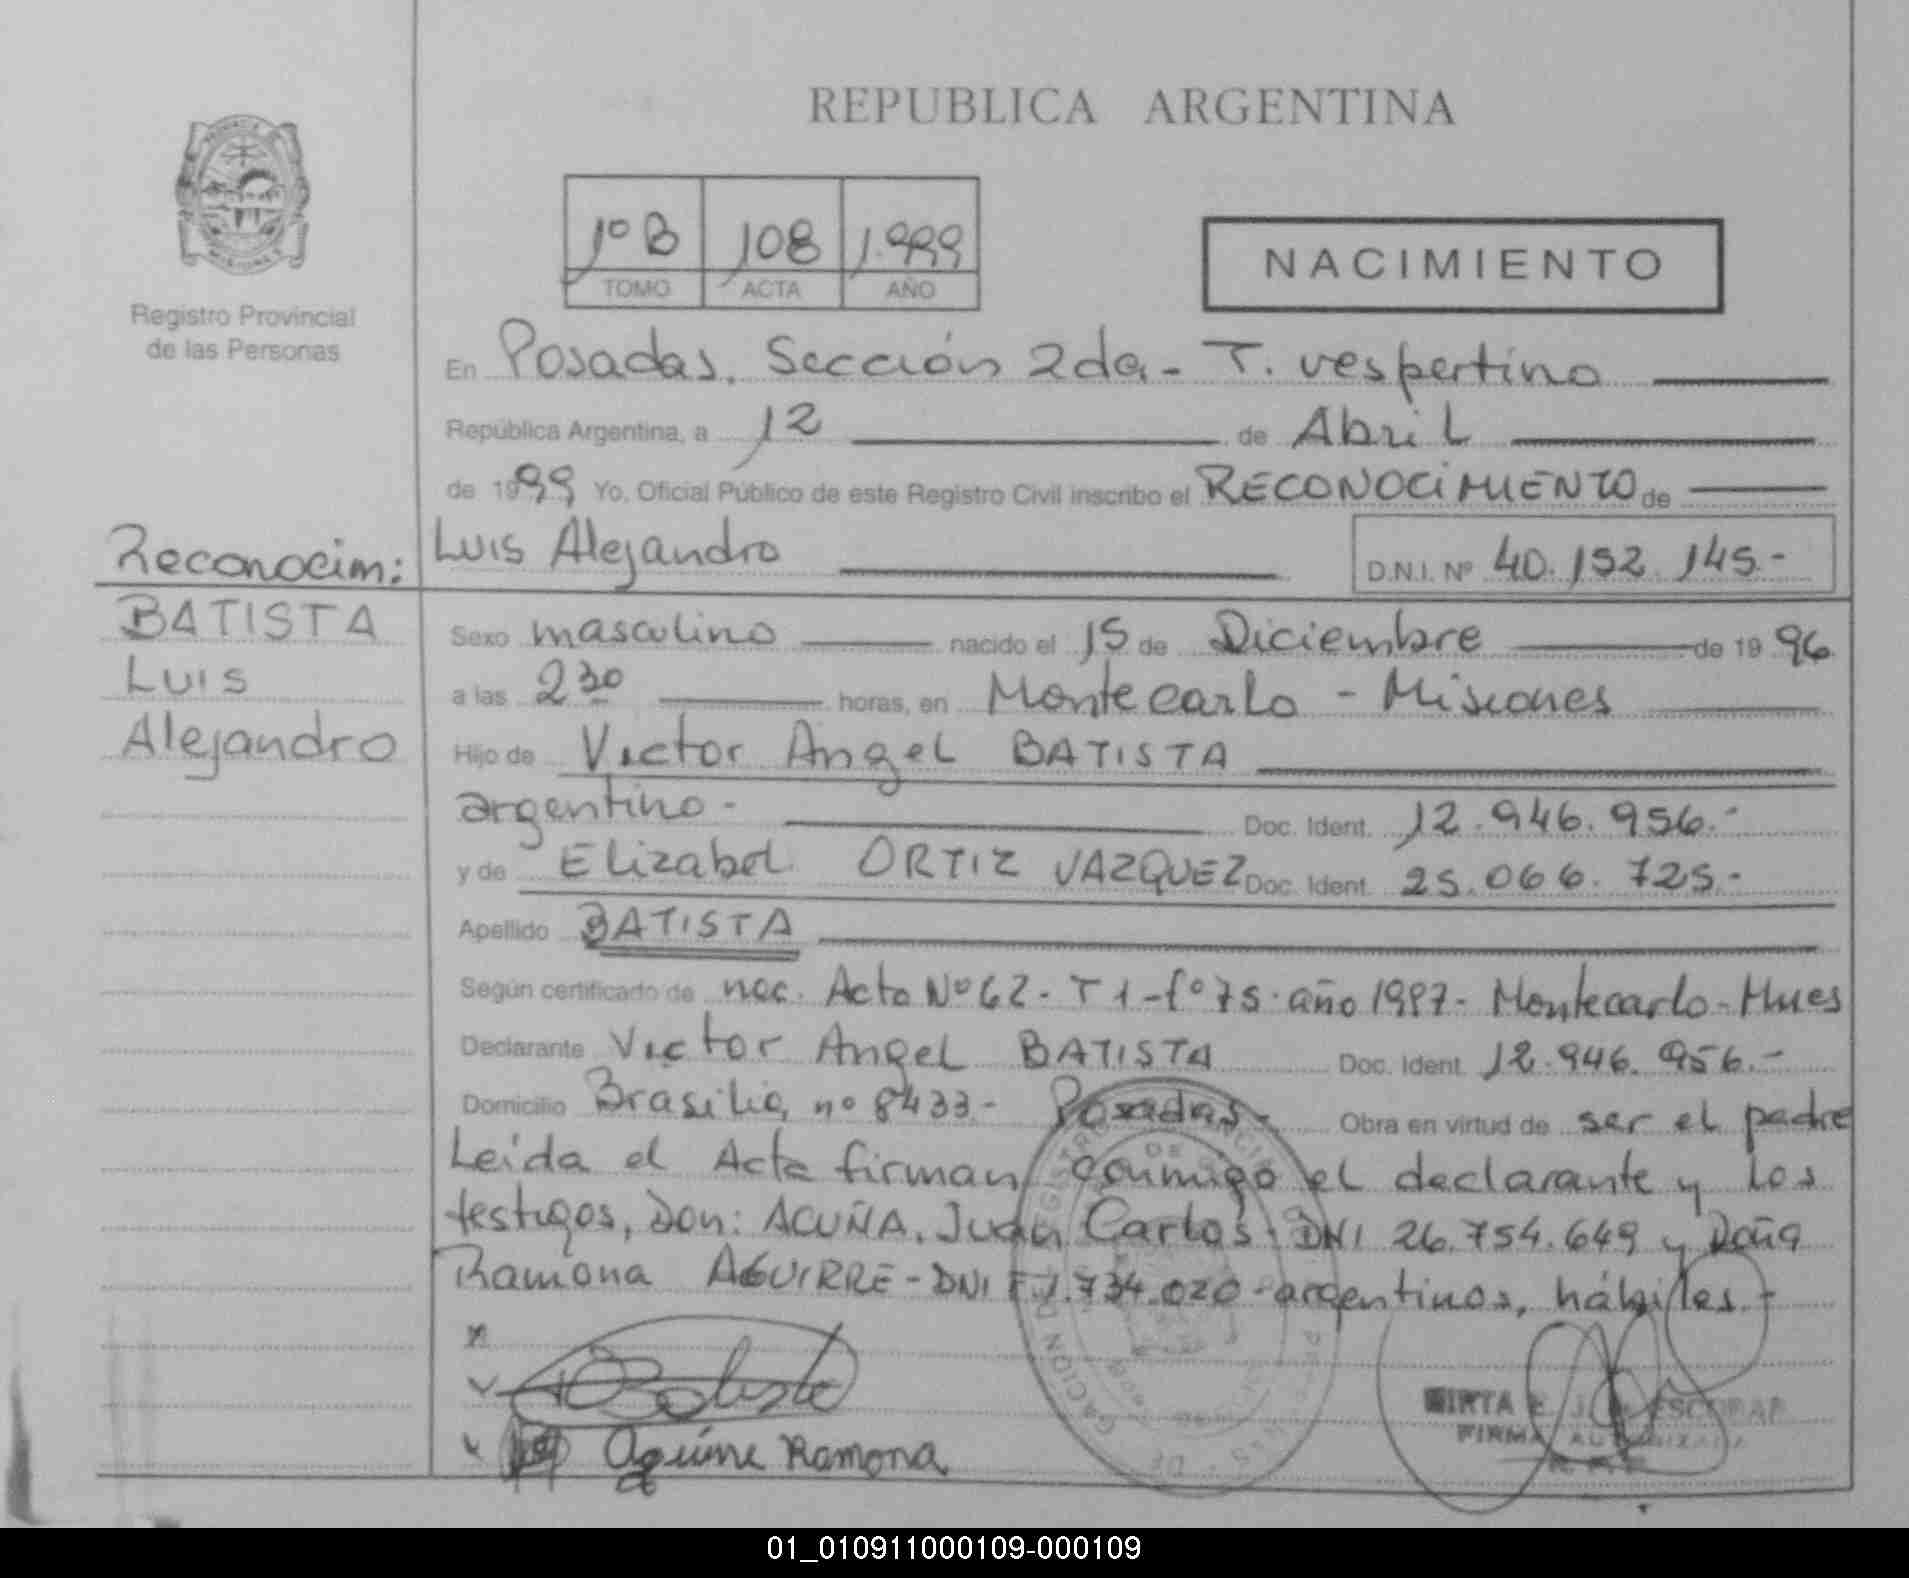 REPUBLICA ARGENTINA
1º B 108 1.999
TOMO ACTA AÑO
NACIMIENTO
Registro Provincial
de las Personas
En Posadas, Sección 2da - T. vespertino
República Argentina, a 12 de Abril
de 1999 Yo, Oficial Público de este Registro Civil inscribo el RECONOCIMIENTO de
Luis Alejandro D.N.I. Nº 40.152.145.-
Reconocim:
BATISTA
Luis
Alejandro
Sexo masculino nacido el 15 de Diciembre de 1996
a las 2 30 horas, en Montecarlo - Misiones
Hijo de Victor Angel BATISTA
argentino - Doc. Ident. 12.946.956.-
y de Elizabet ORTIZ VAZQUEZ Doc. Ident. 25.066.725.-
Apellido BATISTA
Según certificado de nac. Acta Nº 62 - T 1 - fº 75 - año 1997 - Montecarlo - Mnes
Declarante Victor Angel BATISTA Doc. Ident. 12.946.956.-
Domicilio Brasilia, nº 8433 - Posadas - Obra en virtud de ser el padre
Leída el Acta firman conmigo el declarante y los
testigos, Don: ACUÑA, Juan Carlos - DNI 26.754.649 y Doña
Ramona AGUIRRE - DNI F 1.734.020 - argentinos, hábiles -
Aguirre Ramona
MIRTA E. J. ESCOBAR
FIRMA AUTORIZADA
01_010911000109-000109